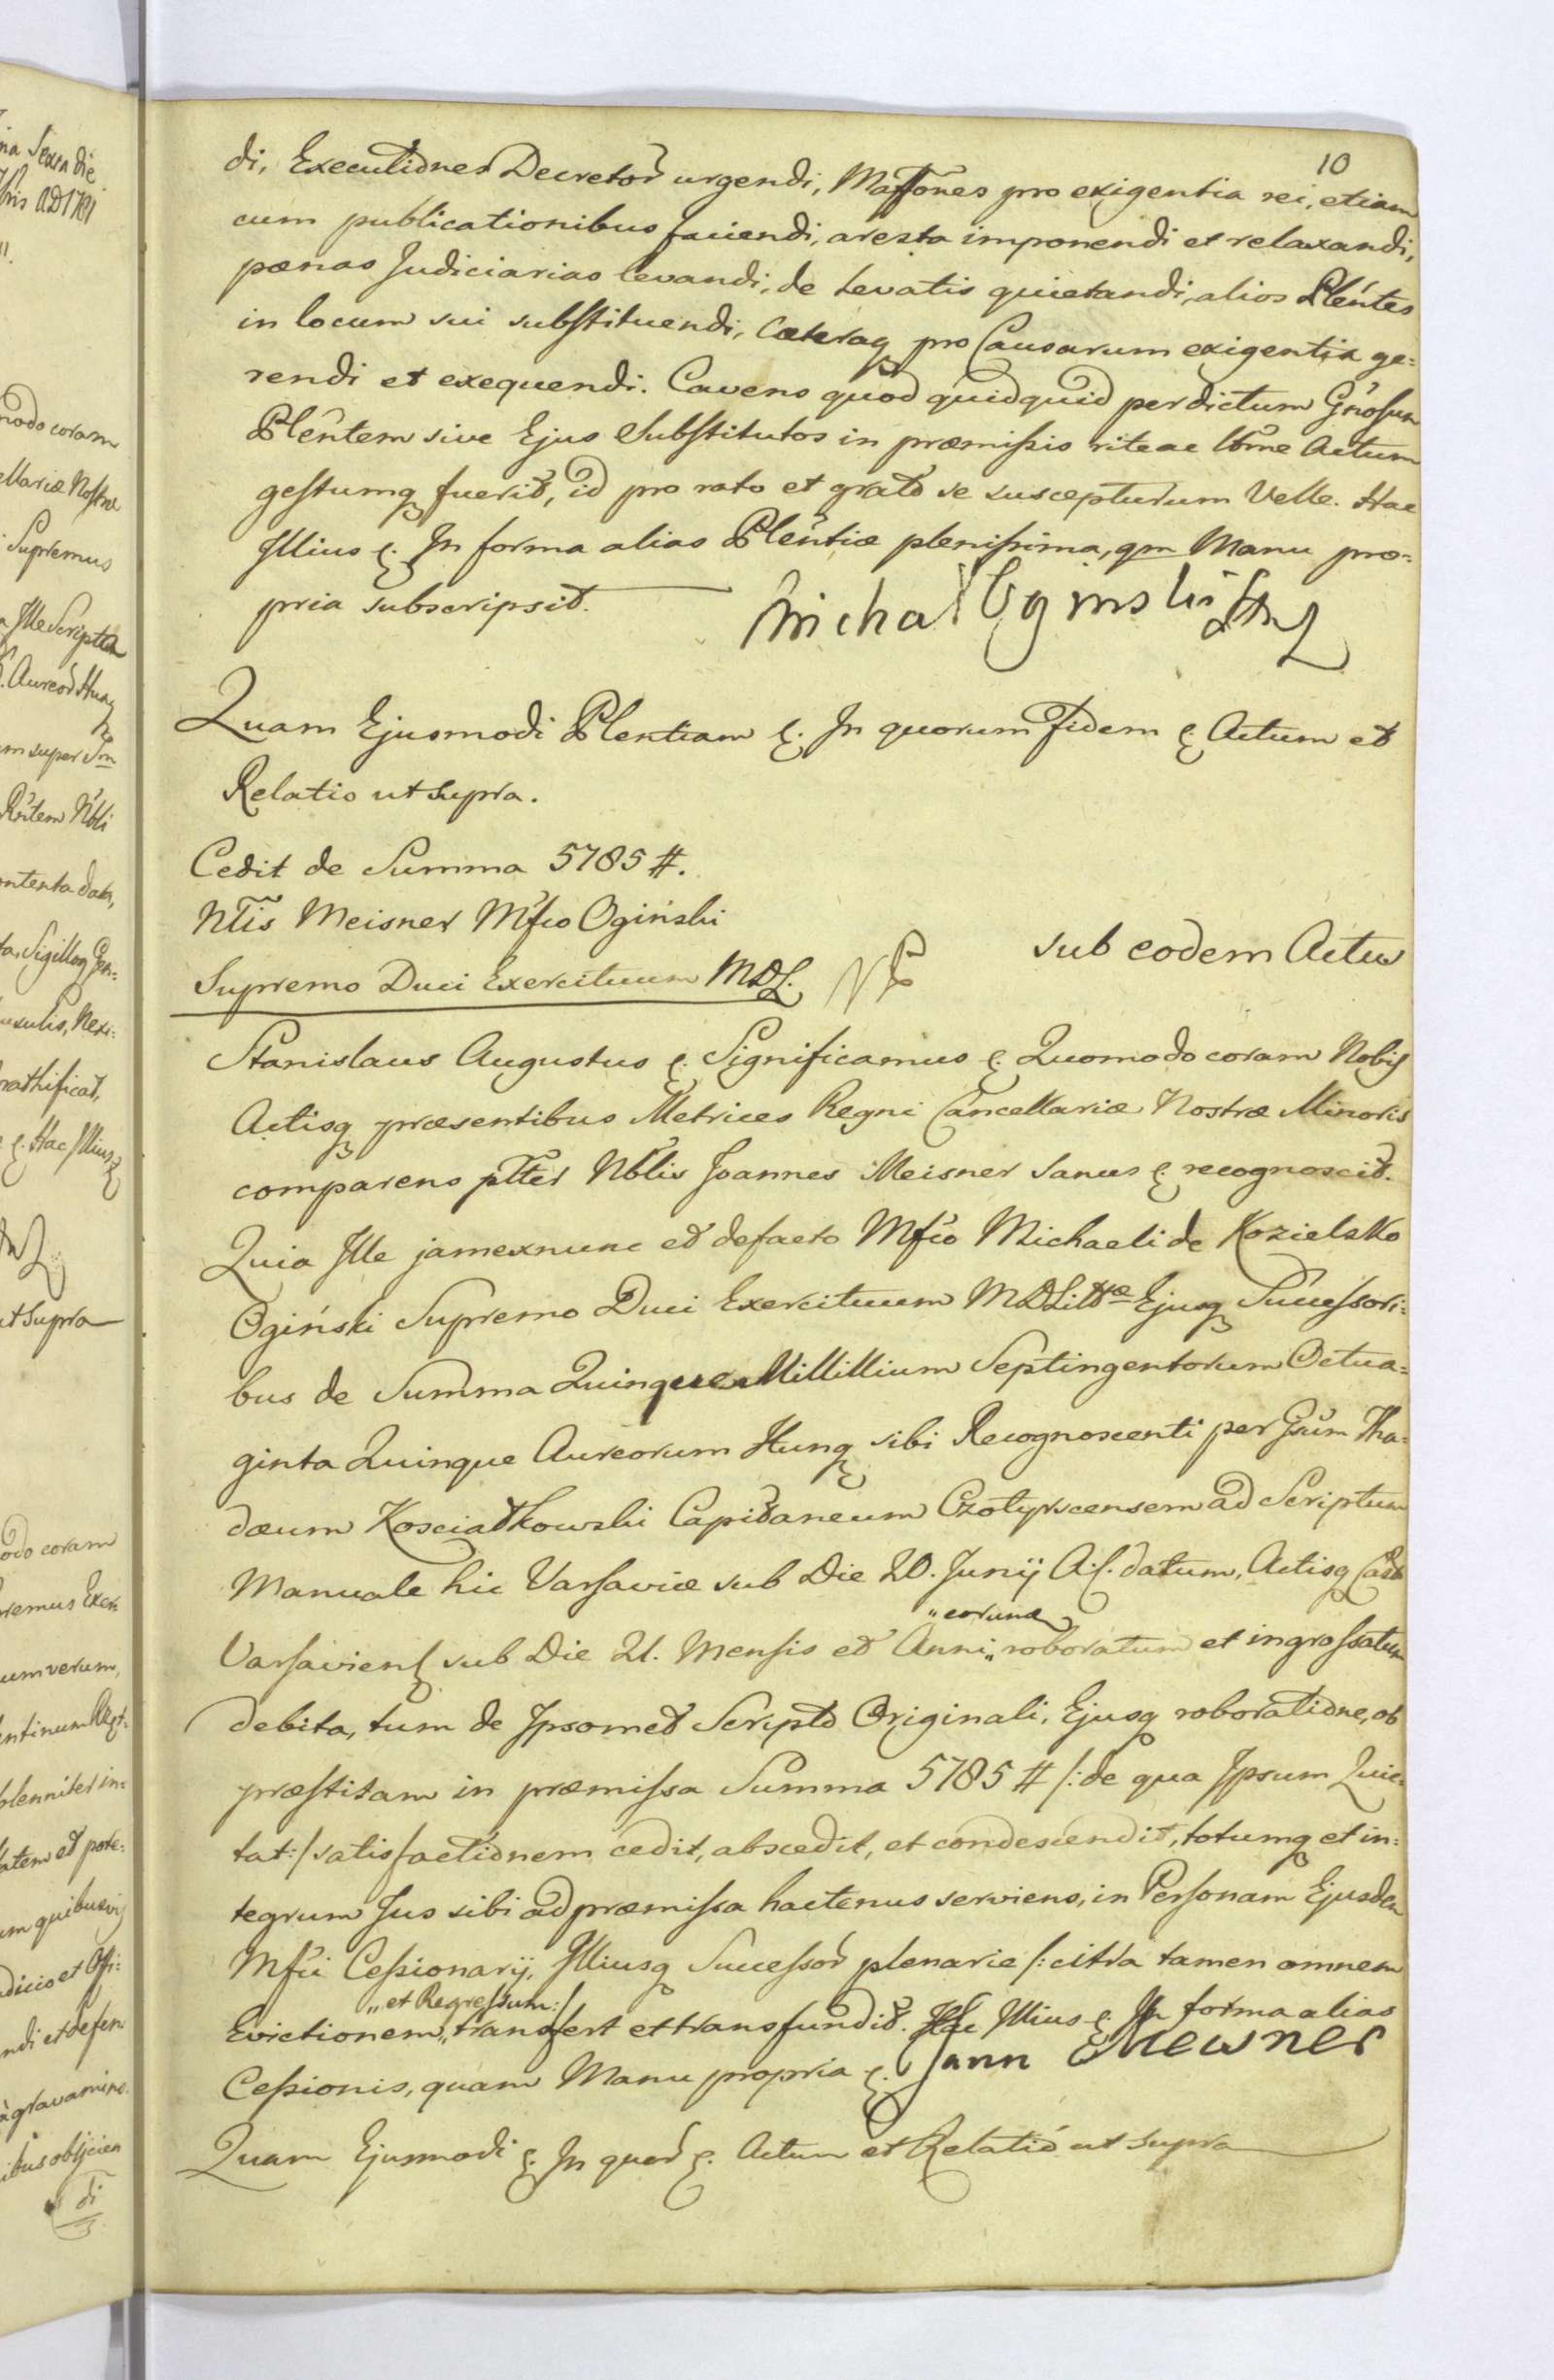 10
di, Executiones Decretor urgendi, Mōnes pro exigentia rei, etiam
cum publicationibus faciendi, aresta imponendi et relaxandi,
pœnas Judiciarias levandi, de levatis quietandi, alios Plentes
in locum sui substituendi, Cæteraq pro Causarum exigentia ge:
rendi et exequendi. Cavens quod quidquid per dictum Gnosum
Plentem sive Ejus Substitutos in præmissis rite ac Ltme Actum
gestumq fuerit, id pro rato et grato se suscepturum Velle. Hac
Illius &. In forma alias Plentiæ plenissima, qm Manu pro:
pria subscripsit. Michał Oginski HWL
Quam Ejusmodi Plentiam &. In quorum Fidem & Actum et
Relatio ut supra.
Cedit de Summa 5785 #.
Nblis Meisner Mfco Ogiński
Supremo Duci Exercituum MDL.
sub eodem Actu
Stanislaus Augustus &. Significamus &. Quomodo coram Nobis
Actisq præsentibus Metrices Regni Cancellariæ Nostræ Minoris
comparens pltter Nblis Joannes Meisner Sanus & recognoscit.
Quia Ille jam ex nunc et de facto Mfco Michaeli de Kozielsko
Ogiński Supremo Duci Exercituum MDLittæ Ejusq Successori:
bus de Summa Quinque Millillium Septingentorum Octua:
ginta Quinque Aureorum Hung sibi Recognoscenti per Gsum Tha:
dæum Kosciałkowski Capitaneum Czotyrscensem ad Scriptum
Manuale hic Varsaviæ sub Die 20. Junij A. C. datum, Actisq Cast
Varsaviens sub Die 21. Mensis et Anni „ eorund „ roboratum et ingrossatum
debita, tum de Ipsomet Scripto Originali, Ejusq roboratione, ob
præstitam in præmissa Summa 5785 # /: de qua Ipsum Quie:
tat :/ satisfactionem cedit, abscedit, et condescendit, totumq et in:
tegrum Jus sibi ad præmissa hactenus serviens, in Personam Ejusdem
Mfci Cessionarij, Illiusq Successor plenarie /: citra tamen omnem
Evictionem „ et Regressum :/ transfert et transfundit. Hac Illius &. In forma alias
Cessionis, quam Manu propria &. Jann Mewner
Quam Ejusmodi &. In quor &. Actum et Relatio ut supra